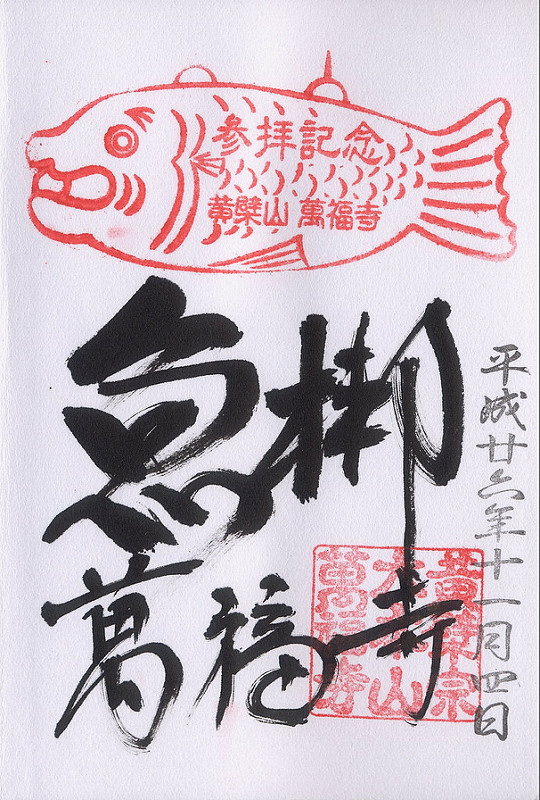 参拝記念
黄檗山 萬福寺
魚梆
萬福寺
平成廿六年十一月四日
黄檗宗
大本山
萬福寺